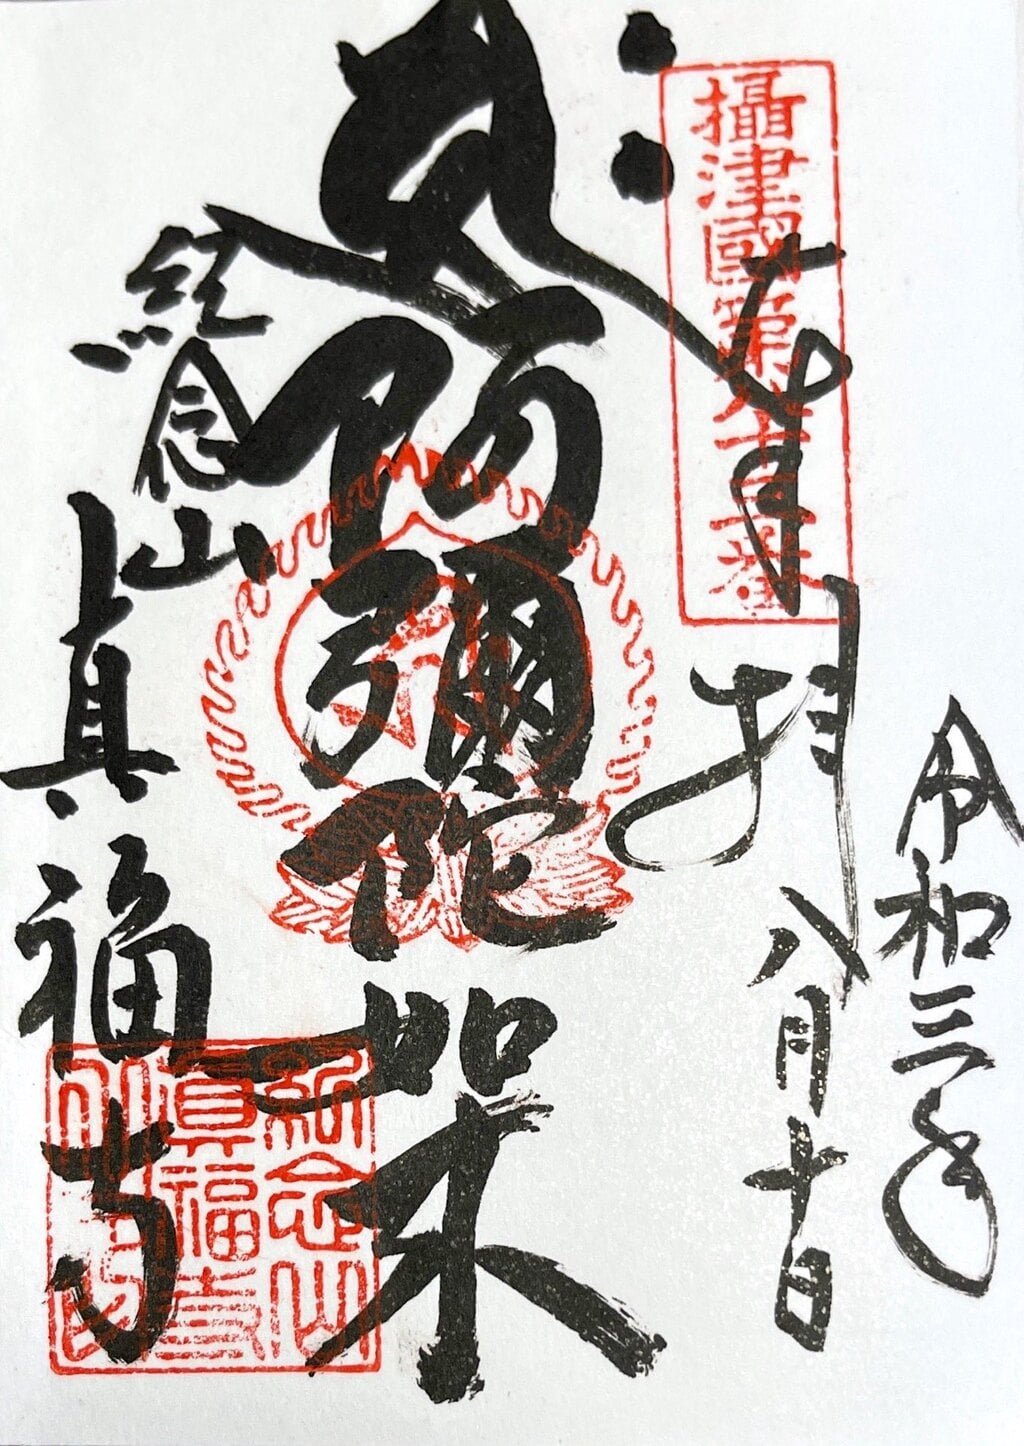 令和三年
八月十日
奉拝
攝津國第
𑖮𑖿𑖨𑖱𑖾
阿彌陀如来
念山
眞福寺
念山
眞福寺